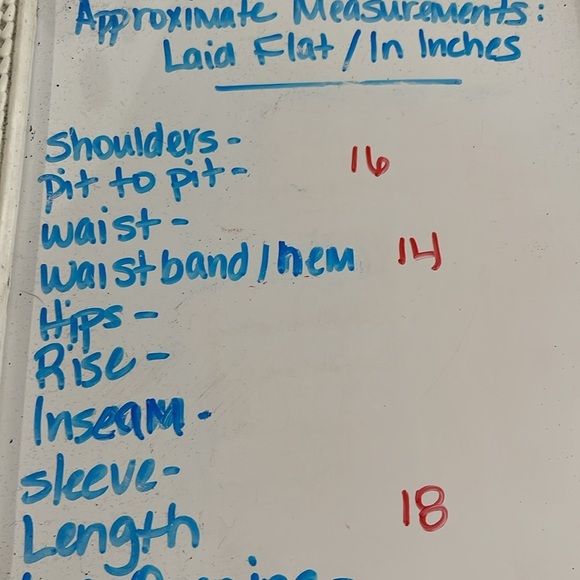 Approximate Measurements:
Laid Flat / In Inches
Shoulders-
pit to pit- 16
waist-
waistband/hem 14
Hips-
Rise-
Inseam-
sleeve-
Length 18